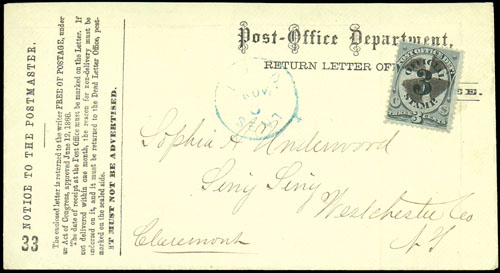 Post-Office Department,
RETURN LETTER OF
E.
POST OFFICE DEPT.
OFFICIAL
3
STAMP.
THREE CENTS
NOV
Sophia A Underwood
Sing Sing
Westchester Co
N Y
Claremont
33
NOTICE TO THE POSTMASTER.
The enclosed letter is returned to the writer FREE OF POSTAGE, under
Act of Congress, approved June 12, 1866.
The date of receipt at the Post Office must be marked on the Letter. If
not delivered within one month, the reason for non-delivery must be
indorsed on it, and it must be returned to the Dead Letter Office, post-
marked on the sealed side.
IT MUST NOT BE ADVERTISED.